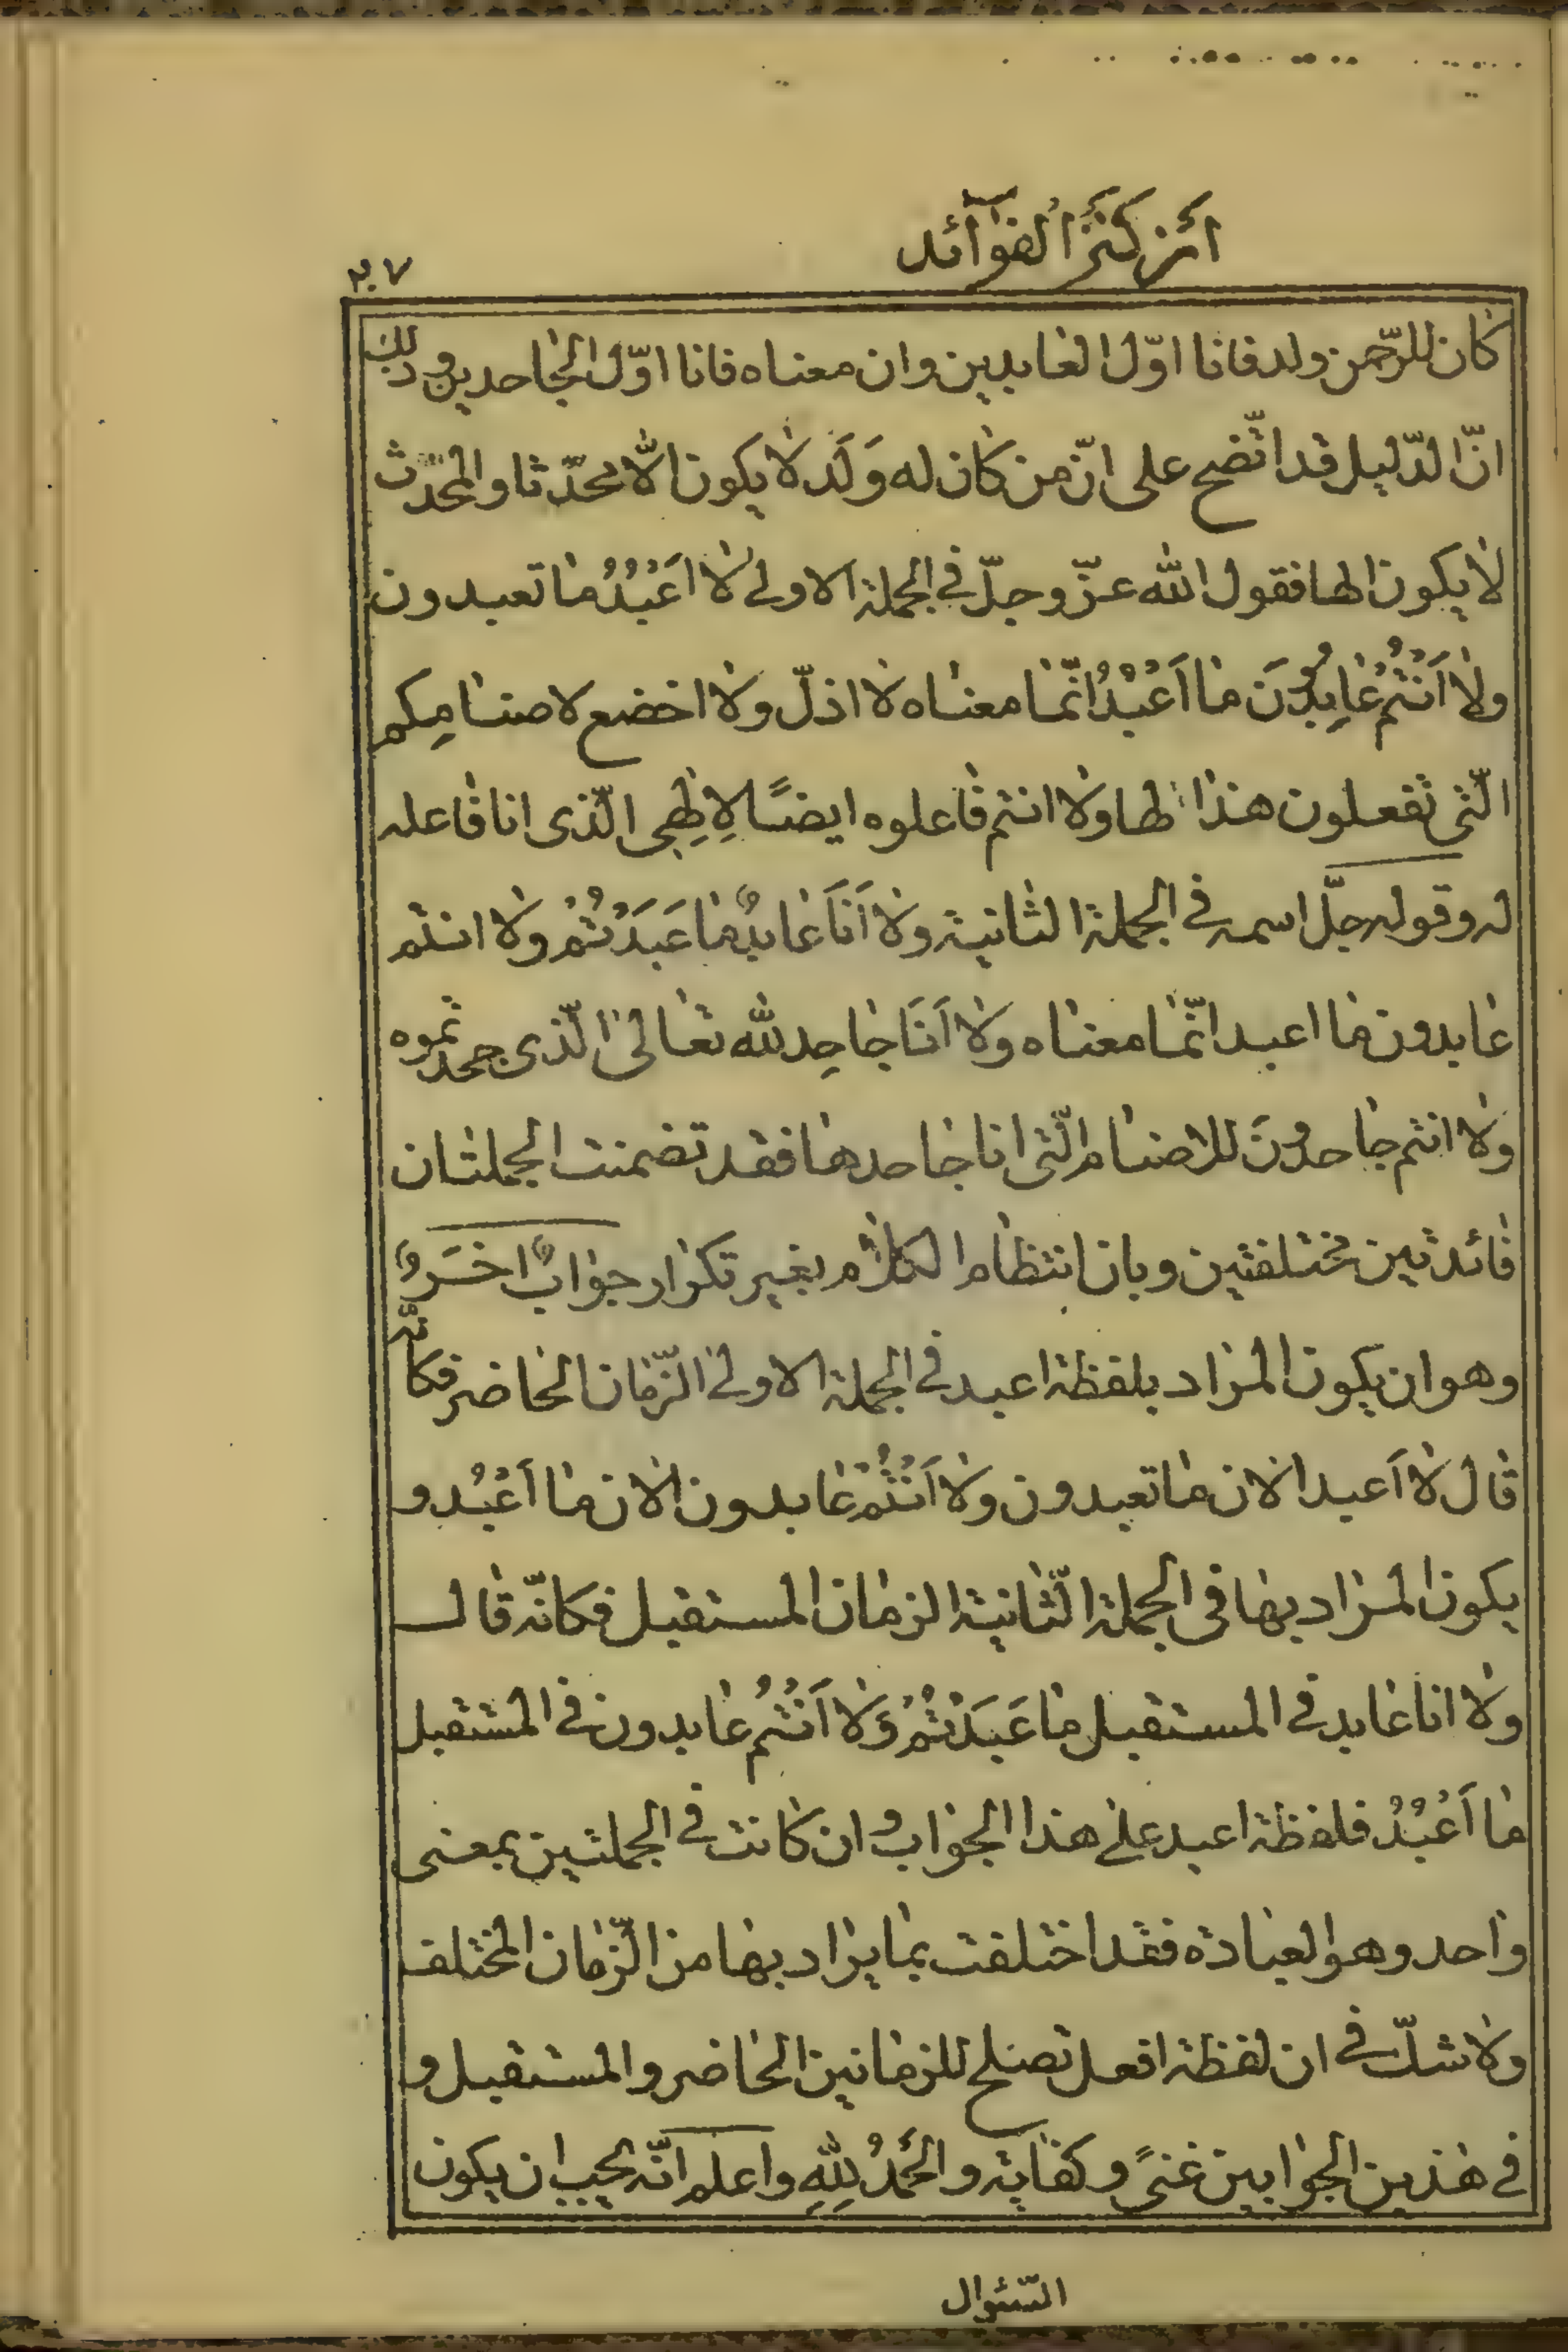 ائز كنز الفوآئد
٢٠٧
كان للرّحمن ولد فانا اوّل العابدين وان معناه فانا اوّل الجاحدين وذلك
انّ الدّليل قد اتّضح على انّ من كان له وَلَد لا يكون الّا محدّثا والمحدّث
لا يكون الها فقول الله عزّ وجلّ في الجملة الاولى لا اَعْبُدُ ما تعبدون
ولا اَنْتُمْ عٰابِدُونَ ما اَعْبُدُ انّما معناه لا اذلّ ولا اخضع لاصنامِكم
الّتى تفعلون هذا لها ولا انتم فاعلوه ايضًا لِالٰهِى الّذى انا فاعله
له وقوله جلّ اسمه في الجملة الثانية ولا اَنَا عٰابِدٌ ما عَبَدْتُمْ ولا انتم
عابدون ما اعبد انّما معناه ولا اَنَا جاحِد لله تعالى الّذى جحدتموه
ولا انتم جاحدُونَ للاصنام الّتى انا جاحدها فقد تضمنت الجملتان
فائدتين مختلفتين وبان انتظام الكلام بغير تكرار جوابٌ اخَرُ
وهو ان يكون المراد بلفظة اعبد في الجملة الاولى الزّمان الحاضر فكانّه
قال لا اَعبد الان ما تعبدون ولا اَنْتُمْ عابدون الان ما اَعْبُد و
يكون المراد بها في الجملة الثّانية الزمان المستقبل فكانّه قال
ولا انا عابد في المستقبل ما عَبَدْتُمْ وَلا اَنْتُمْ عابدون في المستقبل
ما اَعْبُدُ فلفظة اعبد على هذا الجواب وان كانت في الجملتين بمعنى
واحد وهو العبادة فقد اختلفت بما يراد بها من الزّمان المختلف
ولا شكّ في ان لفظة افعل تصلح للزمانين الحاضر والمستقبل و
في هذين الجوابين غنىً وكفاية والحَمْدُ لِلّهِ واعلم انّه يجب ان يكون
السّئوال